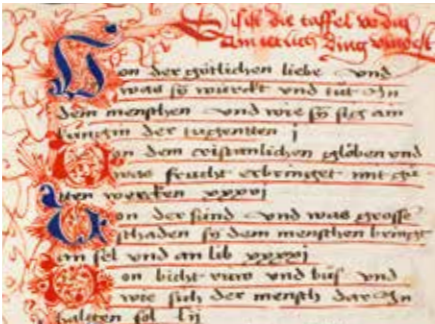 Dis ist die taffel wo du
ein ietlich ding vindest
Von der götlichen liebe vnd
was sy würckt vnd tůt Jn
dem menschen vnd wie sy sige ain
küngin der tugentten j
Von dem cristanlichen glöben vnd
was frucht er bringet mit gů
tten wercken xxxvj
Von der sünd vnd was grosse
schaden sy dem menschen bringt
an sel vnd an lib xxxxj
Von bicht ruw vnd bůß vnd
wie sich der mensch dar Jn
halten sol lij